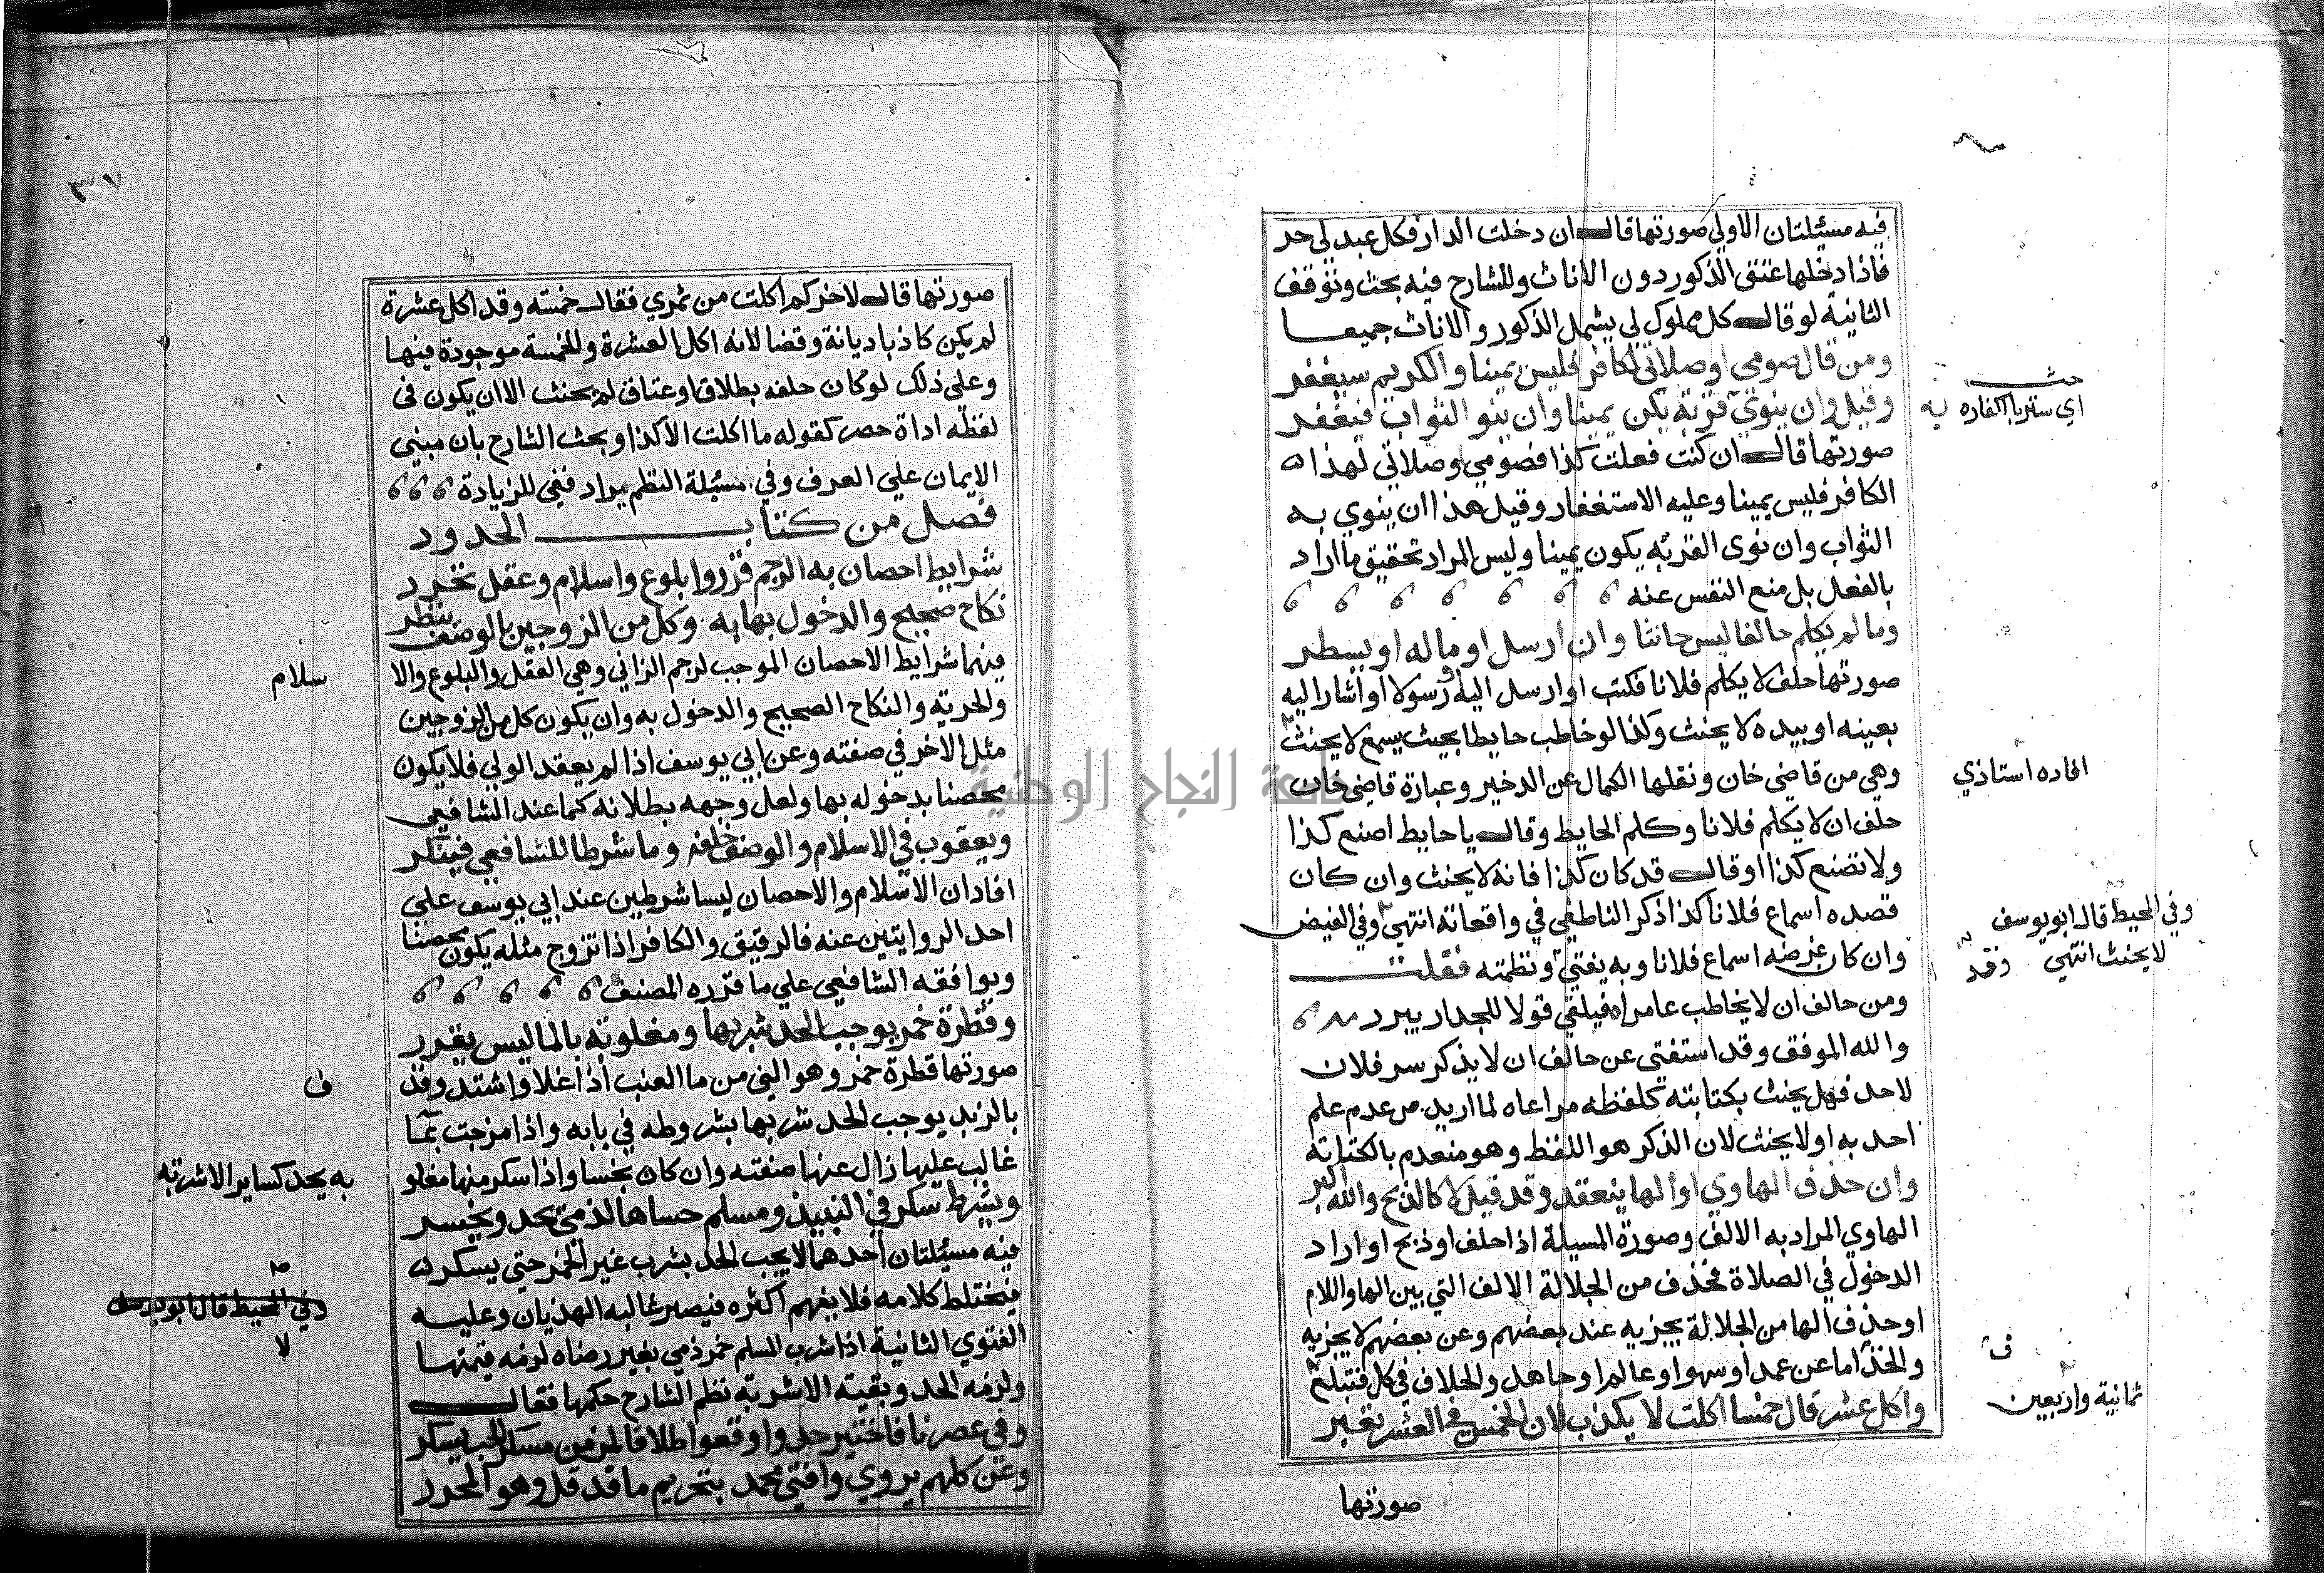 فيه مسئلتان الاولي صورتها قال ان دخلت الدار فكل عبد لي حر
فاذا دخلها عتق الذكور دون الاناث وللشارح فيه بحث وتوقف
الثانية لو قال كل مملوك لي يشمل الذكور والاناث جميعا
ومن قال صومي او صلاتي لكافر فليس يمينا والكريم سيغفر
وقيل وان ينوي قربة يكن يمينا وان ينو الثواب فيغفر
صورتها قال ان كنت فعلت كذا فصومي وصلاتي لهذا
الكافر فليس يمينا وعليه الاستغفار وقيل هذا ان ينوي به
الثواب وان نوى القربه يكون يمينا وليس المراد تحقيق ما اراد
بالفعل بل منع النفس عنه
وما لم يكلم حالفا ليس حانثا وان ارسل او ما له او يسطر
صورتها حلف لا يكلم فلانا فكتب او ارسل اليه رسولا او اشار اليه
بعينه او بيده لا يحنث وكذا لو خاطب حايطا بحيث يسمع لا يحنث
وهي من قاضي خان ونقلها الكمال عن الدخير وعبارة قاضي خان
حلف ان لا يكلم فلانا وكلم الحايط وقال يا حايط اصنع كذا
ولا تصنع كذا او قال قد كان كذا فانه لا يحنث وان كان
قصده اسماع فلانا كذا ذكر الناطفي في واقعاته انتهي وفي الفيض
وان كان غرضه اسماع فلانا وبه يفتي ونظمته فقلت
ومن حالف ان لا يخاطب عامرا فيلقي قولا للجدار يبرر
والله الموفق وقد استفتي عن حالف ان لا يذكر سر فلان
لاحد فهل يحنث بكتابته كلفظه مراعاه لما اريد من عدم علم
احد به او لا يحنث لان الذكر هو اللفظ وهو منعدم بالكتابة
وان حذف الهاوي او الها ينعقد وقد قيل لا كالذبح والله اكبر
الهاوي المراد به الالف وصورة المسيلة اذا حلف او ذبح او اراد
الدخول في الصلاة فحذف من الجلالة الالف التي بين الها واللام
او حذف الها من الجلالة يجزيه عند بعضهم وعن بعضهم لا يجزيه
والحذف اما عن عمد او سهو او عالم او جاهل والخلاف في كل فتبلغ
واكل عشر قال خمسا اكلت لا يكذب لان الخمس في العشر تغبر
صورتها
حنث
اي ستر بالكفاره به
افاده استاذي
وفي المحيط قال ابو يوسف
لا يحنث انتهي وقد
ف
ثمانية واربعين
٣٧
صورتها قال لاخر كم اكلت من ثمري فقال خمسه وقد اكل عشرة
لم يكن كاذبا ديانة وقضا لانه اكل العشرة والخمسة موجودة فيها
وعلى ذلك لو كان حلفه بطلاق او عتاق لم يحنث الا ان يكون في
لفظه اداة حصر كقوله ما اكلت الا كذا وبحث الشارح بان مبني
الايمان علي العرف وفي مسئلة النظم يراد فنفي للزيادة
فصل من كتاب الحدود
شرايط احصان به الرجم قرروا بلوغ واسلام وعقل تحرر
نكاح صحيح والدخول بها به وكل من الزوجين بالوصف ينظر
فيهما شرايط الاحصان الموجب لرجم الزاني وهي العقل والبلوغ والا
والحرية والنكاح الصحيح والدخول به وان يكون كل من الزوجين
مثل الاخر في صفته وعن ابي يوسف اذا لم يعقد الولي فلا يكون
محصنا بدخوله بها ولعل وجهه بطلانه كما عند الشافعي
ويعقوب في الاسلام والوصف خلفه وما شرطا للشافعي فيذكر
افاد ان الاسلام والاحصان ليسا شرطين عند ابي يوسف علي
احد الروايتين عنه فالرقيق والكافر اذا تزوج مثله يكون محصنا
ويوافقه الشافعي علي ما قرره المصنف
وقطرة خمر يوجب الحد شربها ومغلوبة بالما ليس يقرر
صورتها قطرة خمر وهو الني من ما العنب اذا غلا واشتد وقذ
بالزبد يوجب الحد شربها بشروطه في بابه واذا مزجت بما
غالب عليها زال عنها صفته وان كان نجسا واذا سكر منها مغلو
ويشرط سكر في النبيذ ومسلم حساها لذمي يحد ويخسر
فيه مسئلتان احدهما لا يجب الحد بشرب غير الخمر حتي يسكر
فيختلط كلامه فلا يفهم اكثره فيصير غالبه الهذيان وعليه
الفتوي الثانية اذا شرب المسلم خمر ذمي بغير رضاه لزمه قيمتها
ولزمه الحد وبقية الاشربه نظم الشارح حكمها فقال
وفي عصرنا فاختير حد واوقعوا طلاقا لمن من مسكر الحب يسكر
وعن كلهم يروي وافتي محمد بتحريم ما قد قل وهو المحرر
سلام
ف
به يحد كساير الاشربة
وفي المحيط قال ابو يوسف
لا
جامعة النجاح الوطنية